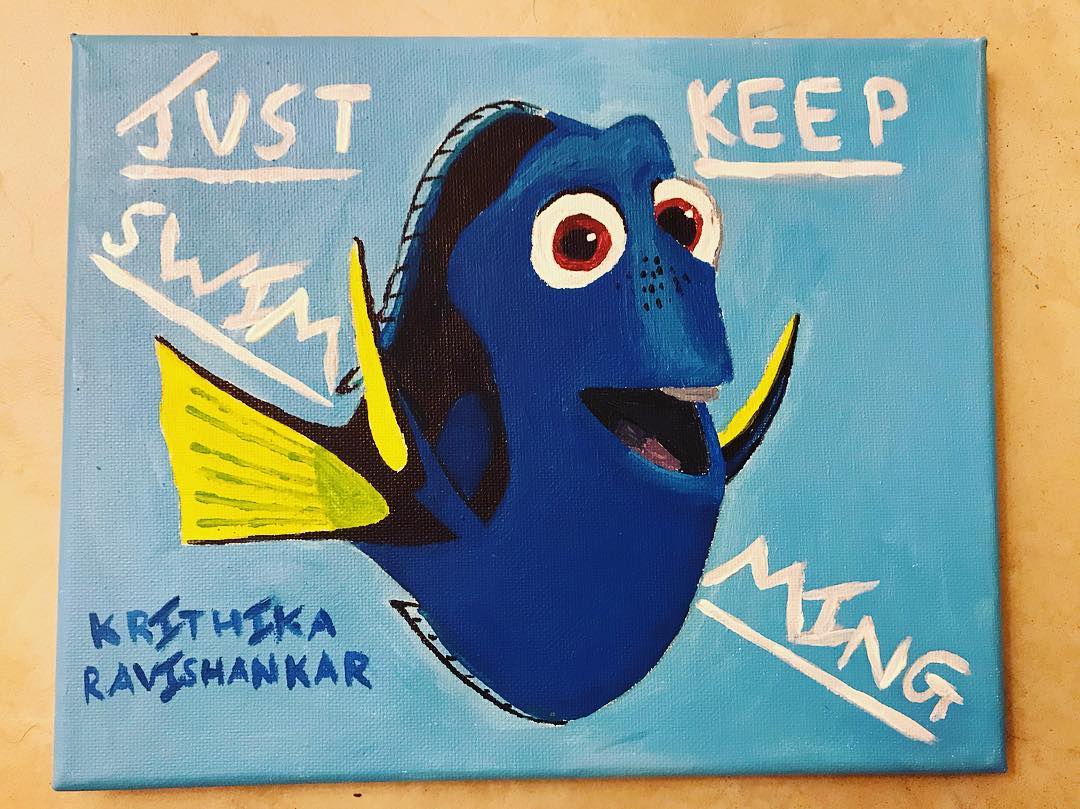 JUST KEEP
SWIM
MING
KRITHIKA
RAVISHANKAR